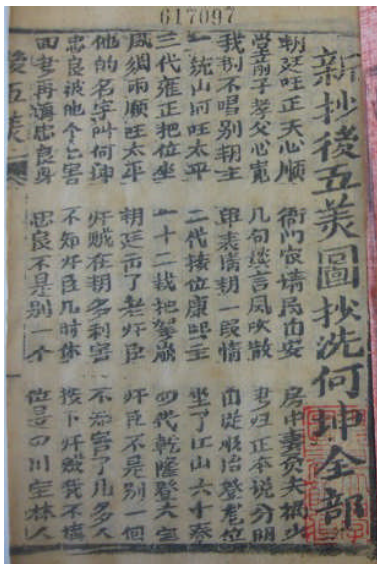 617097
新抄後五美圖抄洗何珅全部
朝廷旺正天心順 衙門設靖民由安 房中妻贤夫禍少
堂前子孝父心寬 几句談言風吹散 書归正本說分明
我别不唱别朝主 单表清朝一段情 由從順治登龙位
一統山河旺太平 二代接位康熙主 坐了江山六十春
三代雍正把位坐 一十二载把駕崩 四代乾隆登大宝
風調雨順旺太平 朝廷出了老奸臣 奸臣不是别一個
他的名字叫何珅 奸贼在朝多利害 不知害了几多人
忠良被他个个害 不知奸臣几时休 接下奸贼我不講
四書再講忠良身 忠良不是别一个 四川林人
後五美